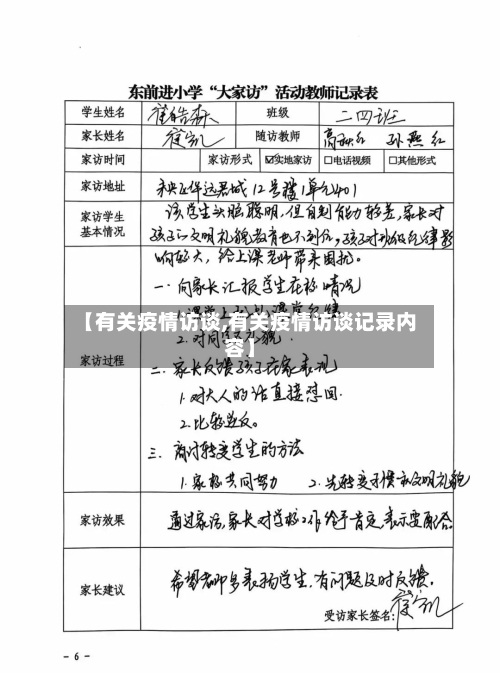 东前进小学“大家访”活动教师记录表
学生姓名 崔皓森 班级 二四班
家长姓名 崔凯 随访教师 高 红 孙燕红
家访时间 家访形式 ☑实地家访 □电话视频 □其他形式
家访地址 12号楼1单元401
家访学生基本情况 该学生头脑聪明,但自制能力较差,家长对
孩子的文明礼貌教育也不到位,孩子对班级纪律影
响较大,给上课老师带来困扰。
家访过程
一·向家长汇报学生在校情况
【有关疫情访谈,有关疫情访谈记录内
容】
2.对同
二.家长反馈孩子在家表现
1.对大人的话直接怼回.
2.比较逆反。
三.商讨转变学生的方法
1.家校共同努力 2.先转变习惯和文明礼貌
家访效果 通过家访,家长对学校工作给予肯定,表示要配合
家长建议 希望老师多表扬学生,有问题及时反馈.
受访家长签名: 崔凯
- 6 -